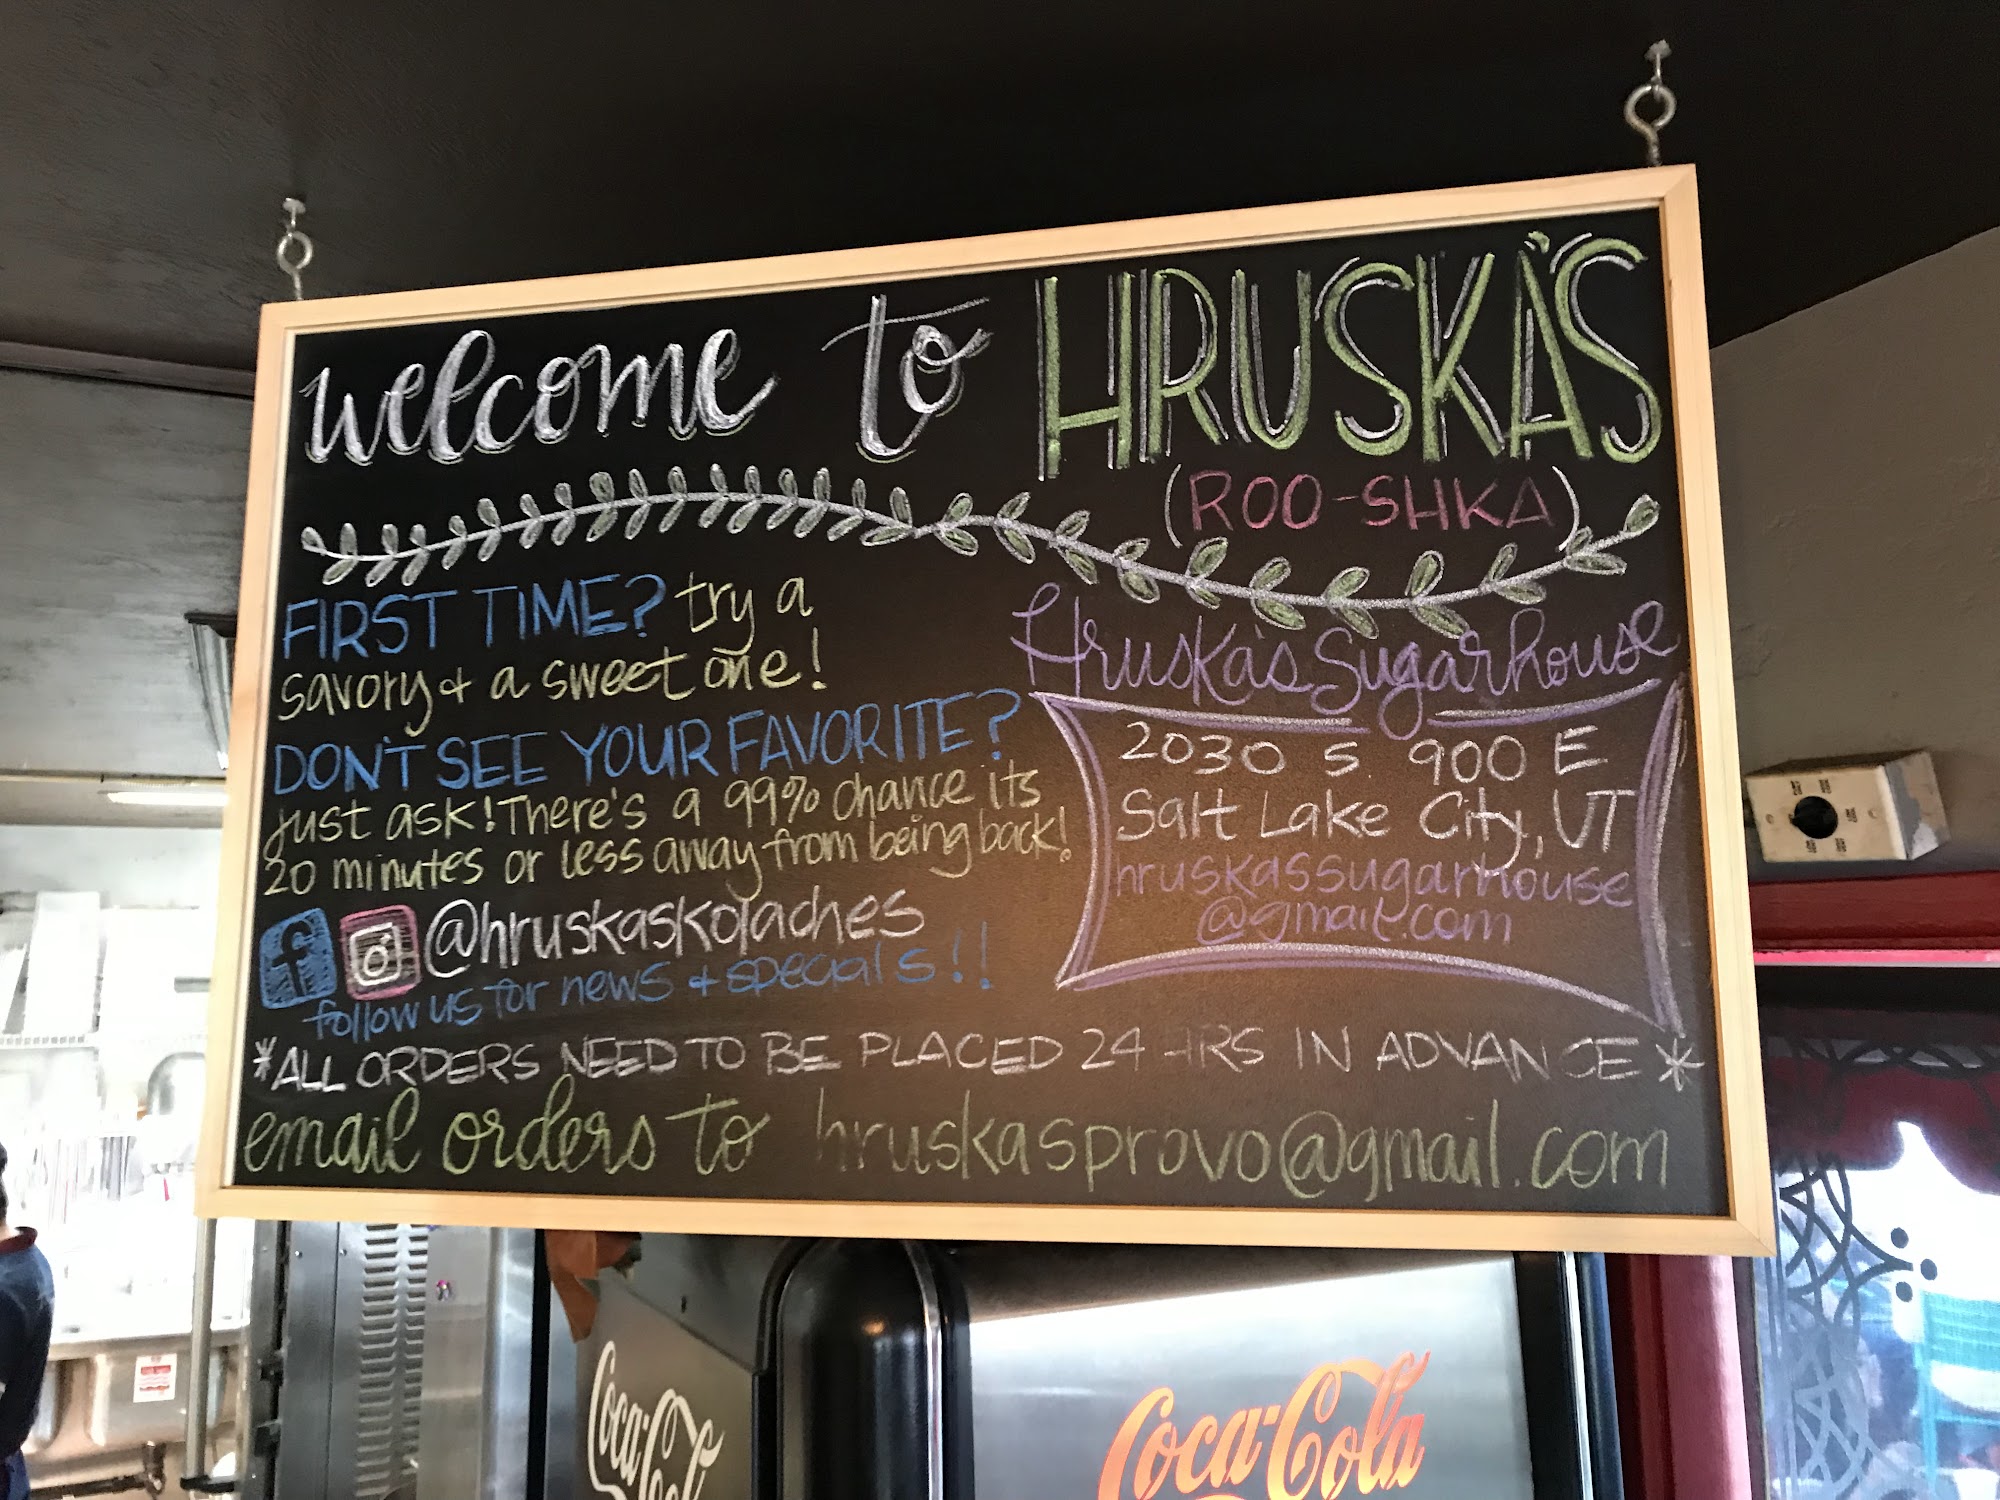 welcome to HRUSKA'S
(ROO-SHKA)
FIRST TIME? try a
savory + a sweet one!
DON'T SEE YOUR FAVORITE?
just ask! There's a 99% chance its
20 minutes or less away from being back!
@hruskaskolaches
follow us for news + specials!!
Hruska's Sugarhouse
2030 S. 900 E
Salt Lake City, UT
hruskassugarhouse
@gmail.com
*ALL ORDERS NEED TO BE PLACED 24 HRS IN ADVANCE*
email orders to hruskasprovo@gmail.com
Coca-Cola
Coca-Cola